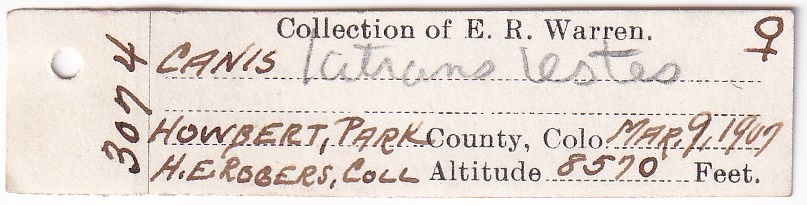 Collection of E. R. Warren. ♀
CANIS latrans lestes
HOWBERT, PARK County, Colo MAR. 9, 1907
H. E. ROGERS, COLL Altitude 8570 Feet.
3074